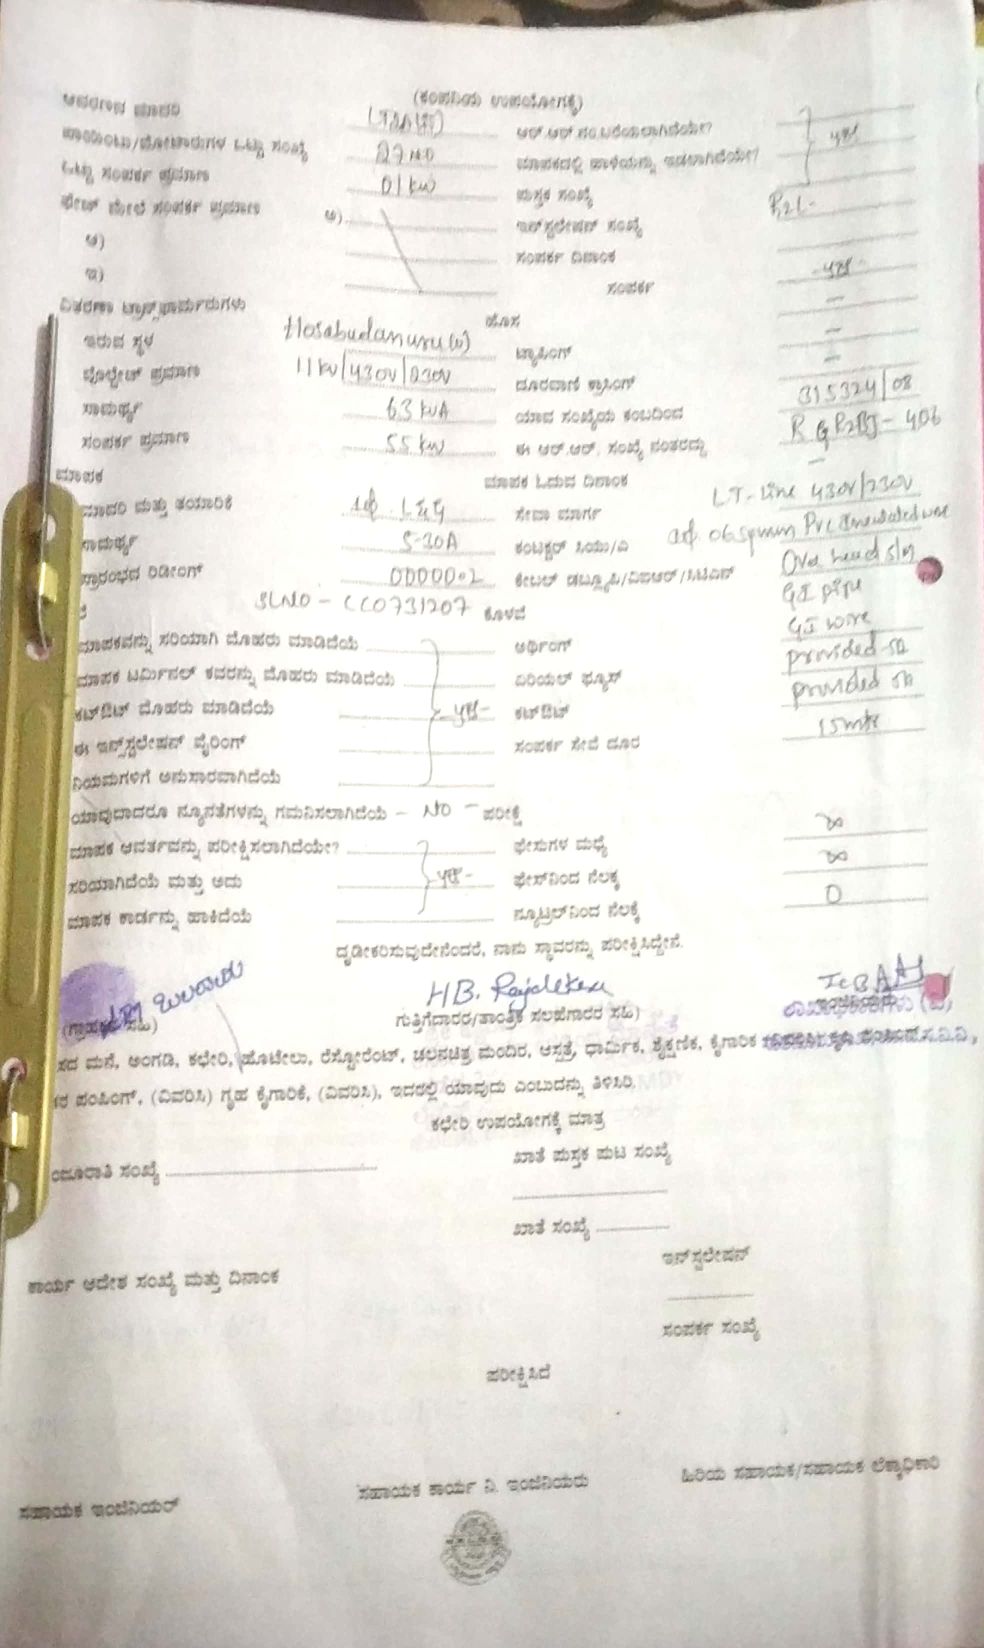 (ಕಂಪನಿಯ ಉಪಯೋಗಕ್ಕೆ)
ಆವರಣದ ಮಾದರಿ ಆರ್.ಆರ್.ನಂ.ಬರೆಯಲಾಗಿದೆಯೇ?
ಪಾಯಿಂಟು/ಮೋಟಾರುಗಳ ಒಟ್ಟು ಸಂಖ್ಯೆ 27 NO ಮಾಪಕದಲ್ಲಿ ಹಾಳೆಯನ್ನು ಇಡಲಾಗಿದೆಯೇ? yes
ಒಟ್ಟು ಸಂಪರ್ಕ ಪ್ರಮಾಣ 01 kw ಪುಸ್ತಕ ಸಂಖ್ಯೆ
ಫೇಸ್ ಮೇಲೆ ಸಂಪರ್ಕ ಪ್ರಮಾಣ ಅ) ಇನ್‌ಸ್ಟಲೇಷನ್ ಸಂಖ್ಯೆ
ಆ) ಸಂಪರ್ಕ ದಿನಾಂಕ
ಇ) ಸಂಪರ್ಕ -yes-
ವಿತರಣಾ ಟ್ರಾನ್ಸ್‌ಫಾರ್ಮರುಗಳು ಹೊಸ -
ಇರುವ ಸ್ಥಳ Hosabudanuru (v) ಟ್ಯಾಪಿಂಗ್ -
ವೋಲ್ಟೇಜ್ ಪ್ರಮಾಣ 11kv/430v/230v ದೂರವಾಣಿ ಕ್ರಾಸಿಂಗ್ -
ಸಾಮರ್ಥ್ಯ 63 kVA ಯಾವ ಸಂಖ್ಯೆಯ ಕಂಬದಿಂದ 315324/08
ಸಂಪರ್ಕ ಪ್ರಮಾಣ 55 kw ಈ ಆರ್.ಆರ್. ಸಂಖ್ಯೆ ನಂತರದ್ದು - 406
ಮಾಪಕ ಮಾಪಕ ಓದುವ ದಿನಾಂಕ -
ಮಾದರಿ ಮತ್ತು ತಯಾರಿಕೆ 1ф. L&G ಸೇವಾ ಮಾರ್ಗ LT-Line 430v/230v
ಸಾಮರ್ಥ್ಯ 5-30A ಕಂಟಕ್ಟರ್ ಸಿಯು/ಎ 06 sqmm Pvc wire
ಪ್ರಾರಂಭದ ರಿಡೀಂಗ್ 00000.2 ಕೇಬಲ್ Over head
SLNO - CC0731207 ಕೊಳವೆ GI pipe
ಮಾಪಕವನ್ನು ಸರಿಯಾಗಿ ಮೊಹರು ಮಾಡಿದೆಯೆ ಅರ್ಥಿಂಗ್ GI wire
ಮಾಪಕ ಟರ್ಮಿನಲ್ ಕವರನ್ನು ಮೊಹರು ಮಾಡಿದೆಯೆ ಏರಿಯಲ್ ಫ್ಯೂಸ್ provided
ಕಟ್‌ಔಟ್ ಮೊಹರು ಮಾಡಿದೆಯೆ yes- ಕಟ್‌ಔಟ್ provided
ಈ ಇನ್‌ಸ್ಟಲೇಷನ್ ವೈರಿಂಗ್ ಸಂಪರ್ಕ ಸೇವೆ ದೂರ 15mtr
ನಿಯಮಗಳಿಗೆ ಅನುಸಾರವಾಗಿದೆಯೆ
ಯಾವುದಾದರೂ ನ್ಯೂನತೆಗಳನ್ನು ಗಮನಿಸಲಾಗಿದೆಯೆ - NO - ಪರೀಕ್ಷೆ
ಮಾಪಕ ಆವರ್ತವನ್ನು ಪರೀಕ್ಷಿಸಲಾಗಿದೆಯೇ? ಫೇಸುಗಳ ಮಧ್ಯೆ ∞
ಸರಿಯಾಗಿದೆಯೆ ಮತ್ತು ಅದು yes- ಫೇಸ್‌ನಿಂದ ನೆಲಕ್ಕೆ ∞
ಮಾಪಕ ಕಾರ್ಡನ್ನು ಹಾಕಿದೆಯೆ ನ್ಯೂಟ್ರಲ್‌ನಿಂದ ನೆಲಕ್ಕೆ 0
ದೃಡೀಕರಿಸುವುದೇನೆಂದರೆ, ನಾನು ಸ್ಥಾವರನ್ನು ಪರೀಕ್ಷಿಸಿದ್ದೇನೆ.
HB.
(ಗ್ರಾಹಕರ ಸಹಿ) ಗುತ್ತಿಗೆದಾರರ/ತಾಂತ್ರಿಕ ಸಲಹೆಗಾರರ ಸಹಿ)
ಸದ ಮನೆ, ಅಂಗಡಿ, ಕಛೇರಿ, ಹೊಟೇಲು, ರೆಸ್ಟೋರೆಂಟ್, ಚಲನಚಿತ್ರ ಮಂದಿರ, ಆಸ್ಪತ್ರೆ, ಧಾರ್ಮಿಕ, ಶೈಕ್ಷಣಿಕ, ಕೈಗಾರಿಕ
ಪಂಪಿಂಗ್, (ವಿವರಿಸಿ) ಗೃಹ ಕೈಗಾರಿಕೆ, (ವಿವರಿಸಿ), ಇದರಲ್ಲಿ ಯಾವುದು ಎಂಬುದನ್ನು ತಿಳಿಸಿರಿ.
ಕಛೇರಿ ಉಪಯೋಗಕ್ಕೆ ಮಾತ್ರ
ಸಂಖ್ಯೆ ಖಾತೆ ಪುಸ್ತಕ ಪುಟ ಸಂಖ್ಯೆ
ಖಾತೆ ಸಂಖ್ಯೆ
ಇನ್‌ಸ್ಟಲೇಷನ್
ಕಾರ್ಯ ಆದೇಶ ಸಂಖ್ಯೆ ಮತ್ತು ದಿನಾಂಕ
ಸಂಪರ್ಕ ಸಂಖ್ಯೆ
ಪರೀಕ್ಷಿಸಿದೆ
ಸಹಾಯಕ ಇಂಜಿನಿಯರ್ ಸಹಾಯಕ ಕಾರ್ಯ ನಿ. ಇಂಜಿನಿಯರು ಹಿರಿಯ ಸಹಾಯಕ/ಸಹಾಯಕ ಲೆಕ್ಕಾಧಿಕಾರಿ